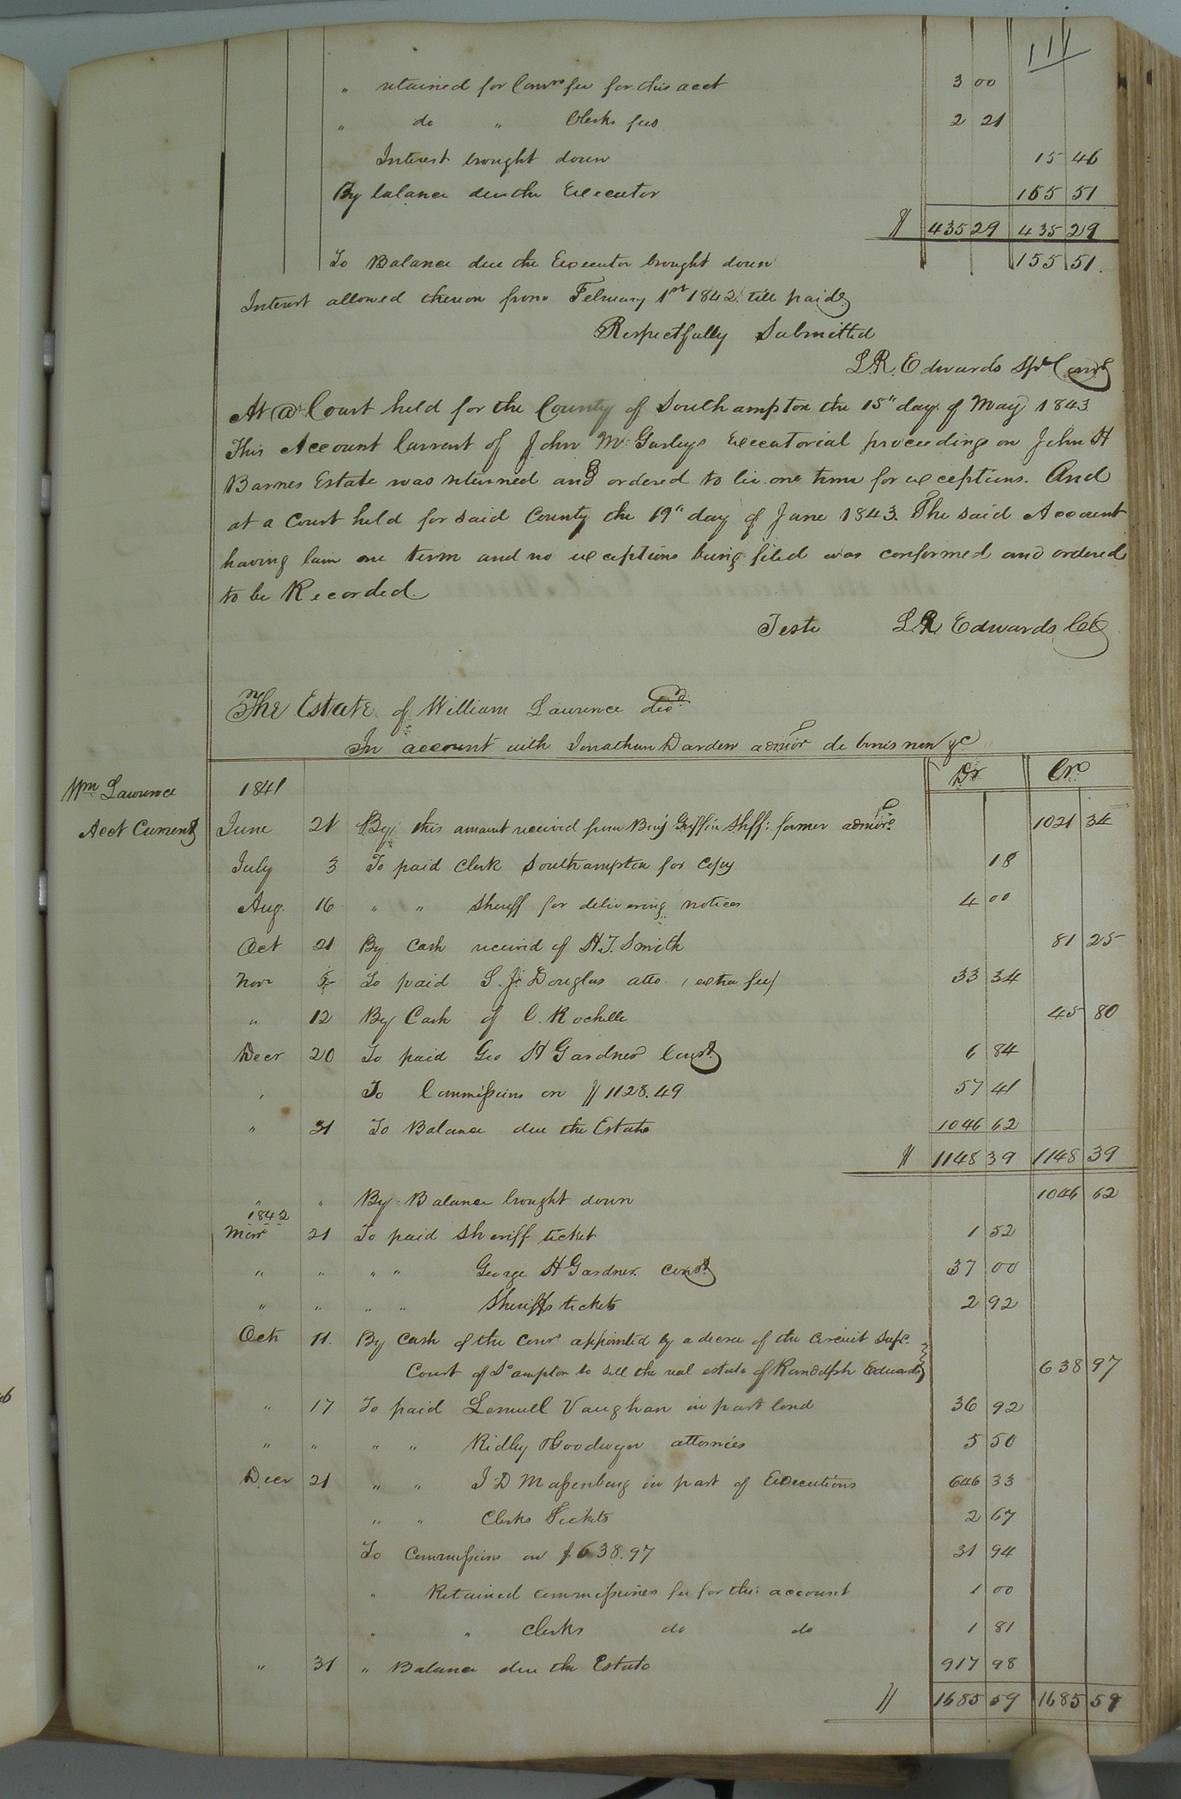 111
" retained for Comrs fee for this acct 3 00
" do " Clerks fees 2 21
Interest brought down 15 46
By balance due the Executor 155 51
$ 435 29 435 29
To Balance due the Executor brought down 155 51.
Interest allowed thereon from February 1st 1842 till paid
Respectfully Submitted
L.R. Edwards Spl Comr
At a Court held for the County of Southampton the 15" day of May 1843
This Account Current of John M Gurleys Executorial proceedings on John H
Barnes Estate was returned and ordered to lie one term for exceptions. And
at a Court held for said County the 19" day of June 1843. The said Account
having lain one term and no exceptions being filed was confirmed and ordered
to be Recorded.
Teste L R Edwards CC
The Estate of William Lawrence decd
In account with Jonathan Darden admor de bonis non &c
Dr Cr
Wm Lawrence 1841
Acct Current June 21 By this amount received from Benj Griffin Shff: former admor 1021 34
July 3 To paid Clerk Southampton for Copy 18
Aug. 16 " " Sheriff for delivering notices 4 00
Oct 21 By Cash received of H.T. Smith 81 25
Novr 5 To paid S. J. Douglas atto (extra fee) 33 34
" 12 By Cash of C. Rochelle 45 80
Decr 20 To paid Geo H Gardner Const 6 84
" To Commissions on $1128.49 57 41
" 31 To Balance due the Estate 1046 62
$ 1148 39 1148 39
" " By Balance brought down 1046 62
1842
Mar 21 To paid Sheriff ticket 1 52
" " " " George H Gardner Const 37 00
" " " " Sheriffs tickets 2 92
Oct 11. By Cash of the Comr appointed by a decree of the Circuit Supr.
Court of So ampton to sell the real estate of Randolph Edwards 638 97
" 17 To paid Lemuel Vaughan in part bond 36 92
" " " " Ridley & Goodwyn attornies 5 50
Decr 21 " " J D Massenburg in part of Executions 646 33
" " Clerks Tickets 2 67
To Commissions on $638.97 31 94
" Retained commissioners fee for this account 1 00
" " Clerks do do 1 81
" 31 " Balance due the Estate 917 98
$ 1685 59 1685 59